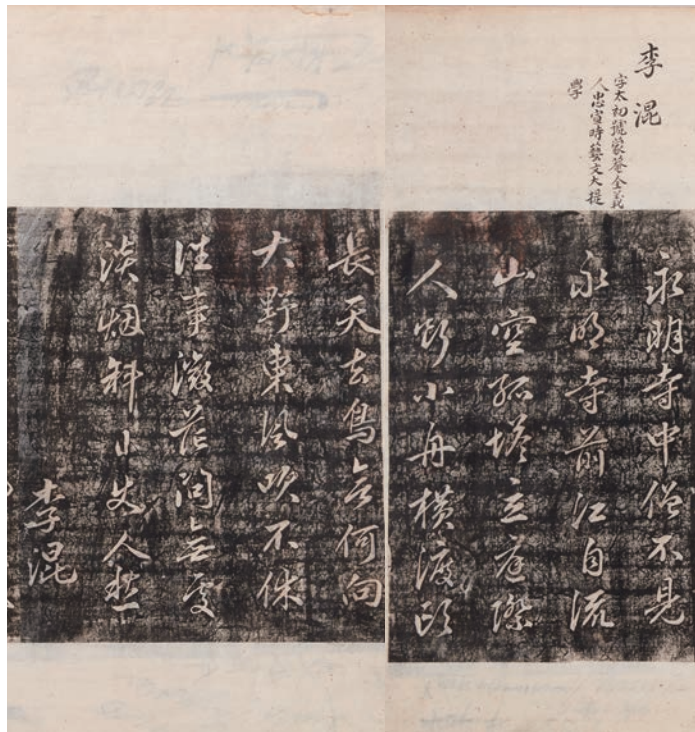 李混
字太初號蒙菴全義
人忠宣時藝文大提
學
永明寺中僧不見
永明寺前江自流
山空孤塔立庭際
人斷小舟橫渡頭
長天去鳥欲何向
大野東風吹不休
往事微茫問無處
淡烟斜日使人愁
李混